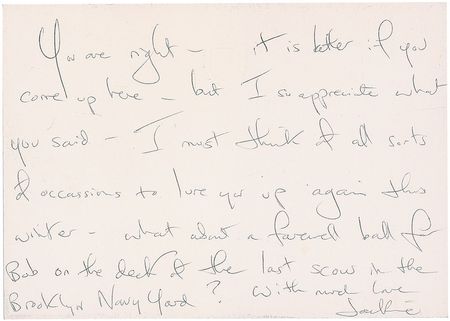 You are right – it is better if you
come up here – but I so appreciate what
you said – I must think of all sorts
of occassions to lure you up again this
winter – what about a farewell ball for
Bob on the deck of the last scow in the
Brooklyn Navy Yard? With much love
Jackie